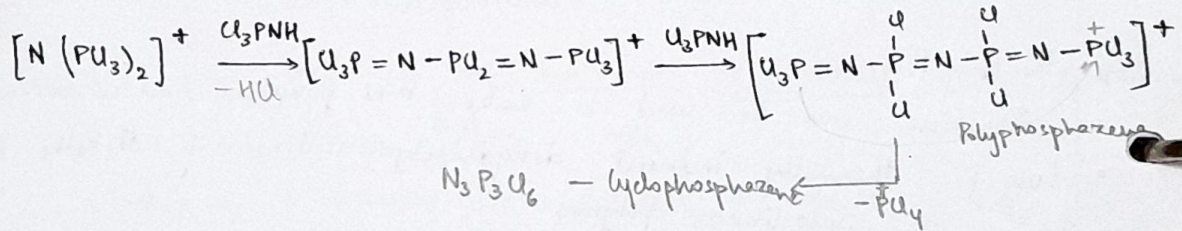 [N (PCl₃)₂]⁺ —Cl₃PNH / −HCl→ [Cl₃P = N − PCl₂ = N − PCl₃]⁺ —Cl₃PNH→ [Cl₃P = N − P(Cl)(Cl) = N − P(Cl)(Cl) = N − P⁺Cl₃]⁺
Polyphosphazene
N₃P₃Cl₆ − Cyclophosphazene ← −P⁺Cl₄